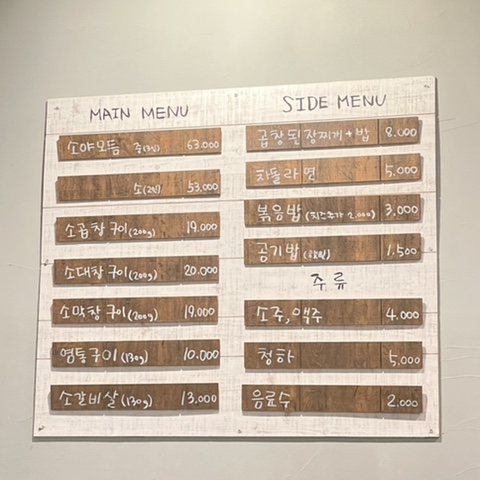 MAIN MENU
소야모듬 주(3인) 63.000
소(2인) 53.000
소곱창구이(200g) 19.000
소대창구이(200g) 20.000
소막창구이(200g) 19.000
염통구이(130g) 10.000
소갈비살(130g) 13.000
SIDE MENU
곱창된장찌개+밥 8.000
차돌라면 5.000
볶음밥(치즈추가 2.000) 3.000
공기밥 1.500
주류
소주,맥주 4.000
청하 5.000
음료수 2.000